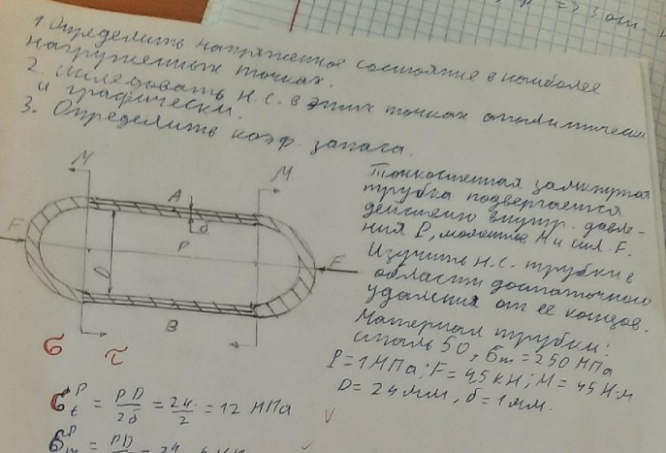 1 Определить напряженное состояние в наиболее
нагруженных точках.
2. Исследовать н.с. в этих точках аналитически
и графически.
3. Определить коэф. запаса.
Тонкостенная замкнутая
трубка подвергается
действию внутр. давле-
ния P, моментов M и сил F.
Изучить н.с. трубки в
области достаточного
удаления от ее концов.
Материал трубки:
сталь 50, σт = 250 МПа
P = 1 МПа; F = 4,5 кН; M = 45 Н·м
D = 24 мм, δ = 1 мм.
M
M
A
δ
F
D
P
F
B
σ
τ
σtᴾ = PD/2δ = 24/2 = 12 МПа
σmᴾ = PD